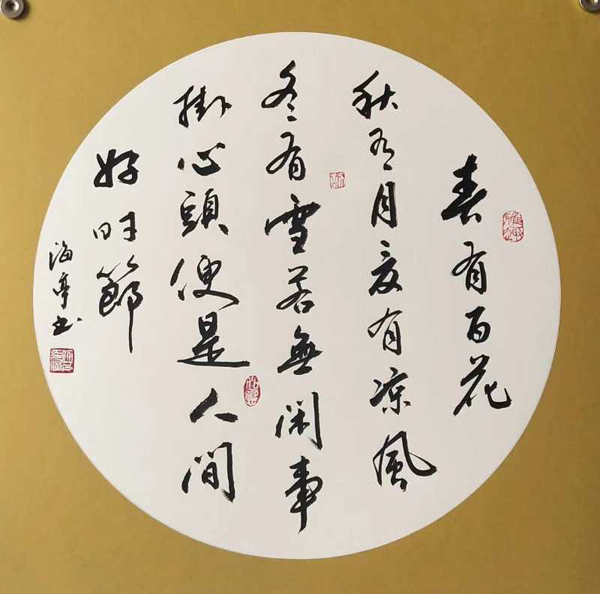 春有百花
秋有月夏有凉风
冬有雪若無闲事
掛心頭便是人间
好时節
海亭书